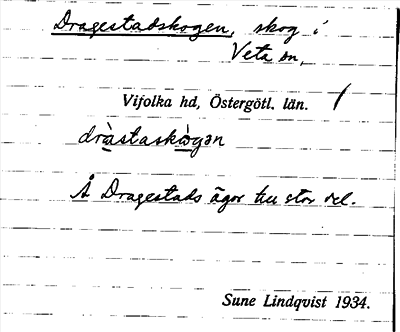 Dragestadskogen, skog i
Veta sn,
Vifolka hd, Östergötl. län.
dràstaskò̀gən
Å Dragestads ägor till stor del.
Sune Lindqvist 1934.